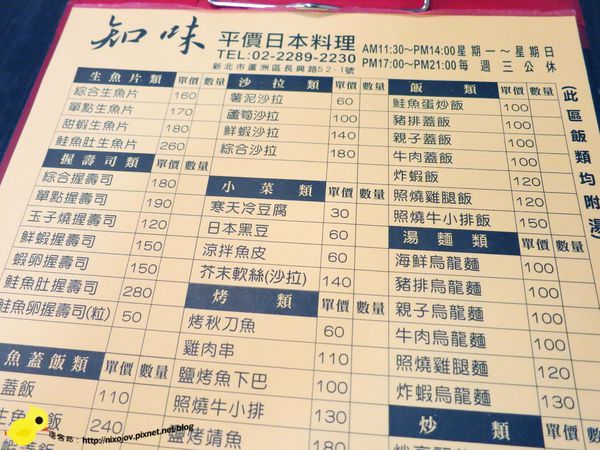 知味 平價日本料理 AM11:30~PM14:00星期一~星期日
TEL:02-2289-2230 PM17:00~PM21:00每週三公休
新北市蘆洲區長興路52-1號
生魚片類 單價 數量
綜合生魚片 160
單點生魚片 170
甜蝦生魚片 180
鮭魚肚生魚片 260
握壽司類 單價 數量
綜合握壽司 180
單點握壽司 190
玉子燒握壽司 120
鮮蝦握壽司 150
蝦卵握壽司 150
鮭魚肚握壽司 280
鮭魚卵握壽司(粒) 50
魚蓋飯類 單價 數量
蓋飯 110
240
沙拉類 單價 數量
薯泥沙拉 60
蘆筍沙拉 100
鮮蝦沙拉 140
綜合沙拉 180
小菜類 單價 數量
寒天冷豆腐 30
日本黑豆 60
涼拌魚皮 60
芥末軟絲(沙拉) 140
烤類 單價 數量
烤秋刀魚 60
雞肉串 110
鹽烤魚下巴 100
照燒牛小排 130
鹽烤鯖魚 180
飯類 單價 數量
鮭魚蛋炒飯 100
豬排蓋飯 100
親子蓋飯 100
牛肉蓋飯 100
炸蝦飯 120
照燒雞腿飯 120
照燒牛小排飯 150
湯麵類 單價 數量
海鮮烏龍麵 100
豬排烏龍麵 100
親子烏龍麵 100
牛肉烏龍麵 100
照燒雞腿麵 120
炸蝦烏龍麵 120
炒類 單價 數量
(此區飯類均附湯)
http://nixojov.pixnet.net/blog